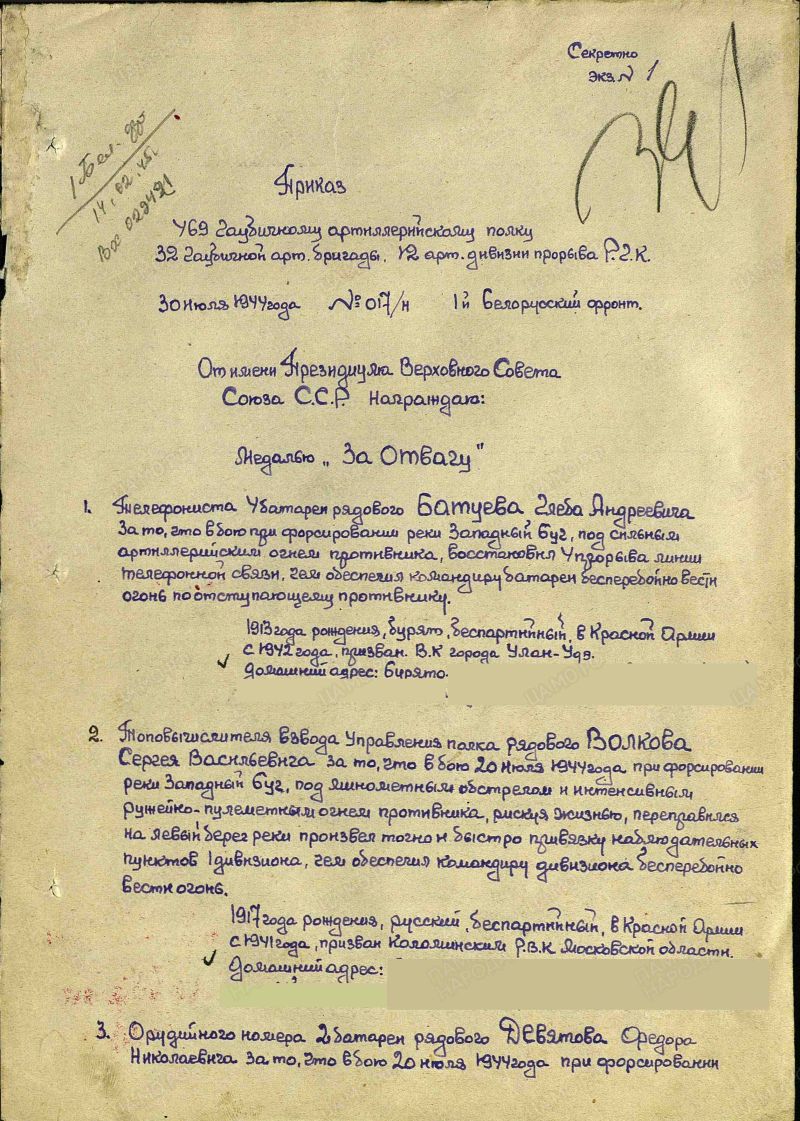 Секретно
Экз. N 1
1 Бел. фр
14.02.45г.
Вх 029421
Приказ
469 Гаубичному артиллерийскому полку
32 Гаубичной арт. бригады. 12 арт. дивизии прорыва Р.Г.К.
30 июля 1944 года № 017/н 1й Белорусский фронт.
От имени Президиума Верховного Совета
Союза С.С.Р. Награждаю:
Медалью „За Отвагу"
1. Телефониста 4 батареи рядового Батуева Глеба Андреевича
За то, что в бою при форсировании реки Западный Буг, под сильным
артиллерийским огнем противника, восстановил 4 прорыва линии
телефонной связи, чем обеспечил командиру батареи бесперебойно вести
огонь по отступающему противнику.
1913 года рождения, бурято, беспартийный, в Красной Армии
с 1942 года, призван. В.К города Улан-Удэ.
Домашний адрес: Бурято.
2. Топовычислителя взвода Управления полка рядового Волкова
Сергея Васильевича за то, что в бою 20 июля 1944 года при форсировании
реки Западный Буг, под минометным обстрелом и интенсивным
ружейно-пулеметным огнем противника, рискуя жизнью, переправился
на левый берег реки произвел точно и быстро привязку наблюдательных
пунктов 1 дивизиона, чем обеспечил командиру дивизиона бесперебойно
вести огонь.
1917 года рождения, русский, беспартийный, в Красной Армии
с 1941 года, призван Коломинским Р.В.К Московской области.
Домашний адрес:
3. Орудийного номера 2 батареи рядового Девятова Федора
Николаевича За то, что в бою 20 июля 1944 года при форсировании